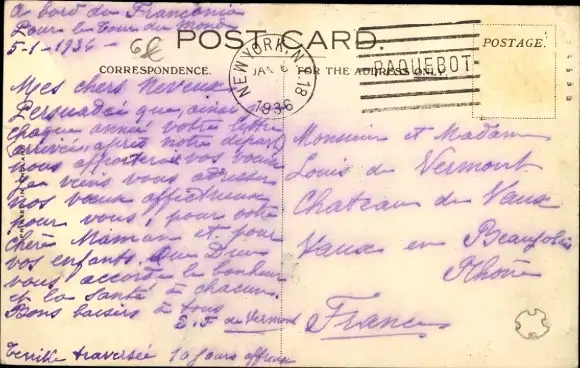 A bord du Franconia
Pour le Tour du Monde
5-1-1936 -
6€
POST CARD.
NEW YORK, N.Y.
JAN 6
1936
18
PAQUEBOT
POSTAGE.
CORRESPONDENCE.
FOR THE ADDRESS ONLY.
Mes chers Neveux
Persuadée que, ainsi
chaque année votre lettre
arrivée, après notre départ,
nous apporterai vos voeux
Je viens vous adresser
nos voeux affectueux
pour vous, pour votre
chère Maman et pour
vos enfants. Que Dieu
vous accorde le bonheur
et la santé à chacun.
Bons baisers à tous
de Vermont
traversée 10 jours affreux
Monsieur et Madame
Louis de Vermont
Chateau de Vaux
Vaux en Beaujolais
Rhône
France